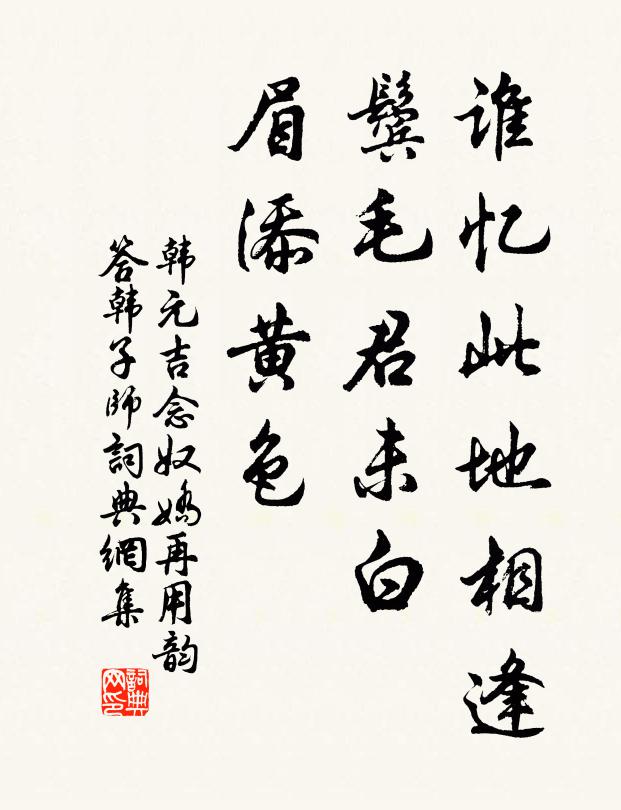 谁忆此地相逢
鬓毛君未白
眉添黄色
韩元吉念奴娇再用韵
答韩子师詞典網集
詞典
网印